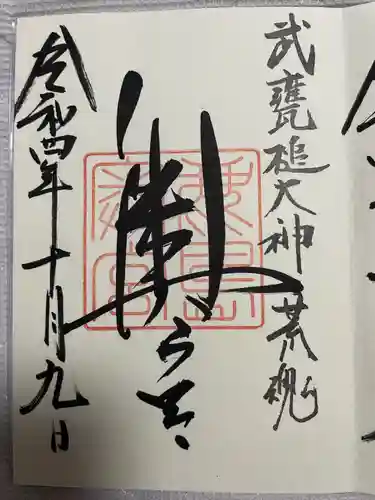 武甕槌大神荒魂
奥宮
鹿島
奥宮
令和四年十月九日